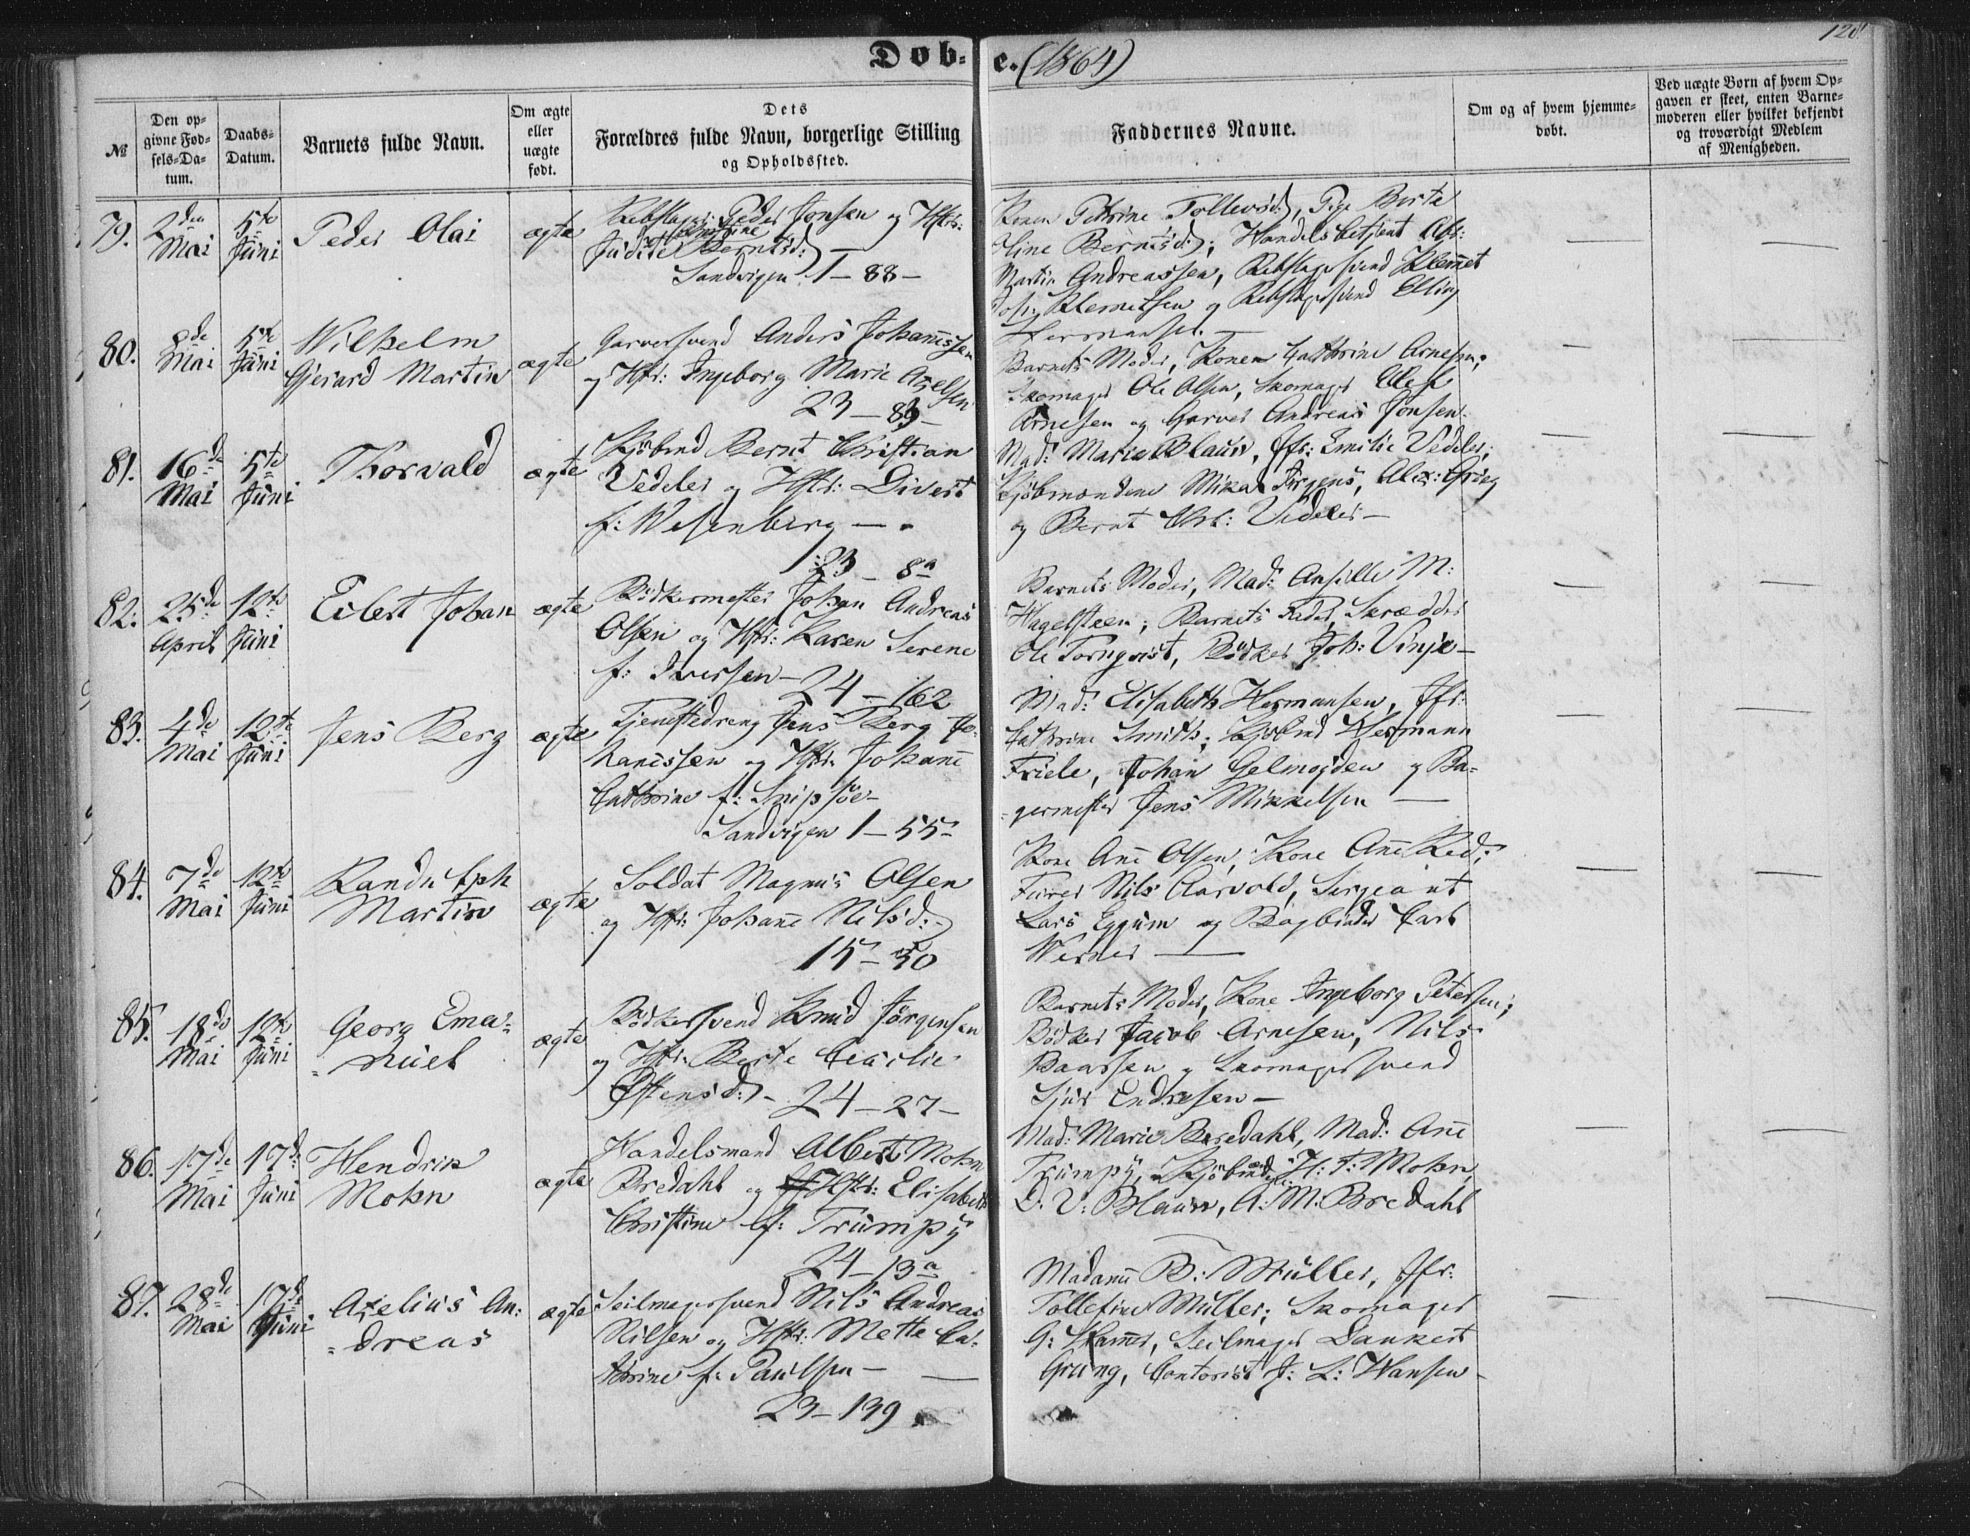 Døb-
e. (1864)
№
Den op-
givne Fød-
sels-Da-
tum.
Daabs-
Datum.
Barnets fulde Navn.
Om ægte
eller
uægte
født.
Dets
Forældres fulde Navn, borgerlige Stilling
og Opholdssted.
Faddernes Navne.
Om og af hvem hjemme-
døbt.
Ved uægte Børn af hvem Op-
gaven er skeet, enten Barne-
moderen eller hvilket bekjendt
og troværdigt Medlem
af Menigheden.
79.
2den
Mai
5te
Juni
Peder Olai
ægte
Rebslager: Peder Jonsen og Hstr:
Judite Berntsd:
Sandvigen 1 — 88 —
Konen Pethrine Tollevsd:, Pige Berte
Oline Berntsd:; Handelsbetjent
Martin Andreassen, Rebslagersvend Klemet
Klemetsen og Rebslagersvend Elling
Hermansen —
80.
8de
Mai
5te
Juni
Wilhelm
Gjerard Martin
ægte
Garversvend Anders Johannessen
og Hstr: Ingeborg Marie Axelsen
23 — 89 —
Barnets Moder, Konen Cathrine Arnesen;
Skomager Ole Olsen, Skomager Ellef
Arnesen og Garver Andreas Jonsen.
81.
16de
Mai
5te
Juni
Thorvald
ægte
Kjøbmd Bernt Christian
Vedeler og Hstr: Divert
f: Wesenberg —
23 — 8a
Mad: Maria Blauw, Jfr: Emilie Vedeler;
Kjøbmændene Mikal Jürgens, Alex: Grieg
og Bernt Chr: Vedeler —
82.
25de
April
12te
Juni
Eilert Johan
ægte
Bødkermester Johan Andreas
Olsen og Hstr: Karen Serene
f: Iversen —
24 — 162
Barnets Moder, Mad: M:
Hagelsteen; Barnets Fader, Skrædder
Ole Tornqvist, Bødker Joh: Vinje —
83.
4de
Mai
12te
Juni
Jens Berg
ægte
Tjenestedreng Jens Berg Jo-
hanessen og Hstr: Johanne
Cathrine f: Snipsøe —
Sandvigen 1 — 55 —
Mad: Elisabeth Hermansen, Jfr:
Cathrine Smith; Kjøbmd Hermann
Friele, Johan Gelmeyden og Ba-
germester Jens Mikkelsen —
84.
7de
Mai
12te
Juni
Randulph
Martin
ægte
Soldat Magnus Olsen
og Hstr: Johanne Nilsd:
15 — 30
Kone Ane Olsen, Kone Ane
Furer Nils Aarvold, Sergeant
Lars Eggum og Bogbinder Carl
Werner —
85.
18de
Mai
12te
Juni
Georg Ema-
nuel
ægte
Bødkersvend Knud Jørgensen
og Hstr: Berte Cecilie
Østensd: —
24 — 27 —
Barnets Moder, Kone Ingeborg Petersen;
Bødker Jacob Arnesen, Nils
Baarsen og Skomagersvend
Sjur Endresen —
86.
17de
Mai
17de
Juni
Hendrik
Mohn
ægte
Handelsmand Albert Mohn
Bredahl og Hstr: Elisabeth
Christine f: Trumpy
24 — 13a
Mad: Marie Bredahl, Mad: Ane
Trumpy, Kjøbmænd: H: F: Mohn,
D: V: Blauw, A: M: Bredahl
87.
28de
Mai
17de
Juni
Axelius An-
dreas
ægte
Seilmagersvend Nils Andreas
Nilsen og Hstr: Mette Ca-
thrine f: Paulsen —
23 — 139
Madame B: Müller, Jfr:
Tollefine Müller; Skomager
G: Hammer, Seilmager Dankert
Grung, Contorist J: L: Hansen —